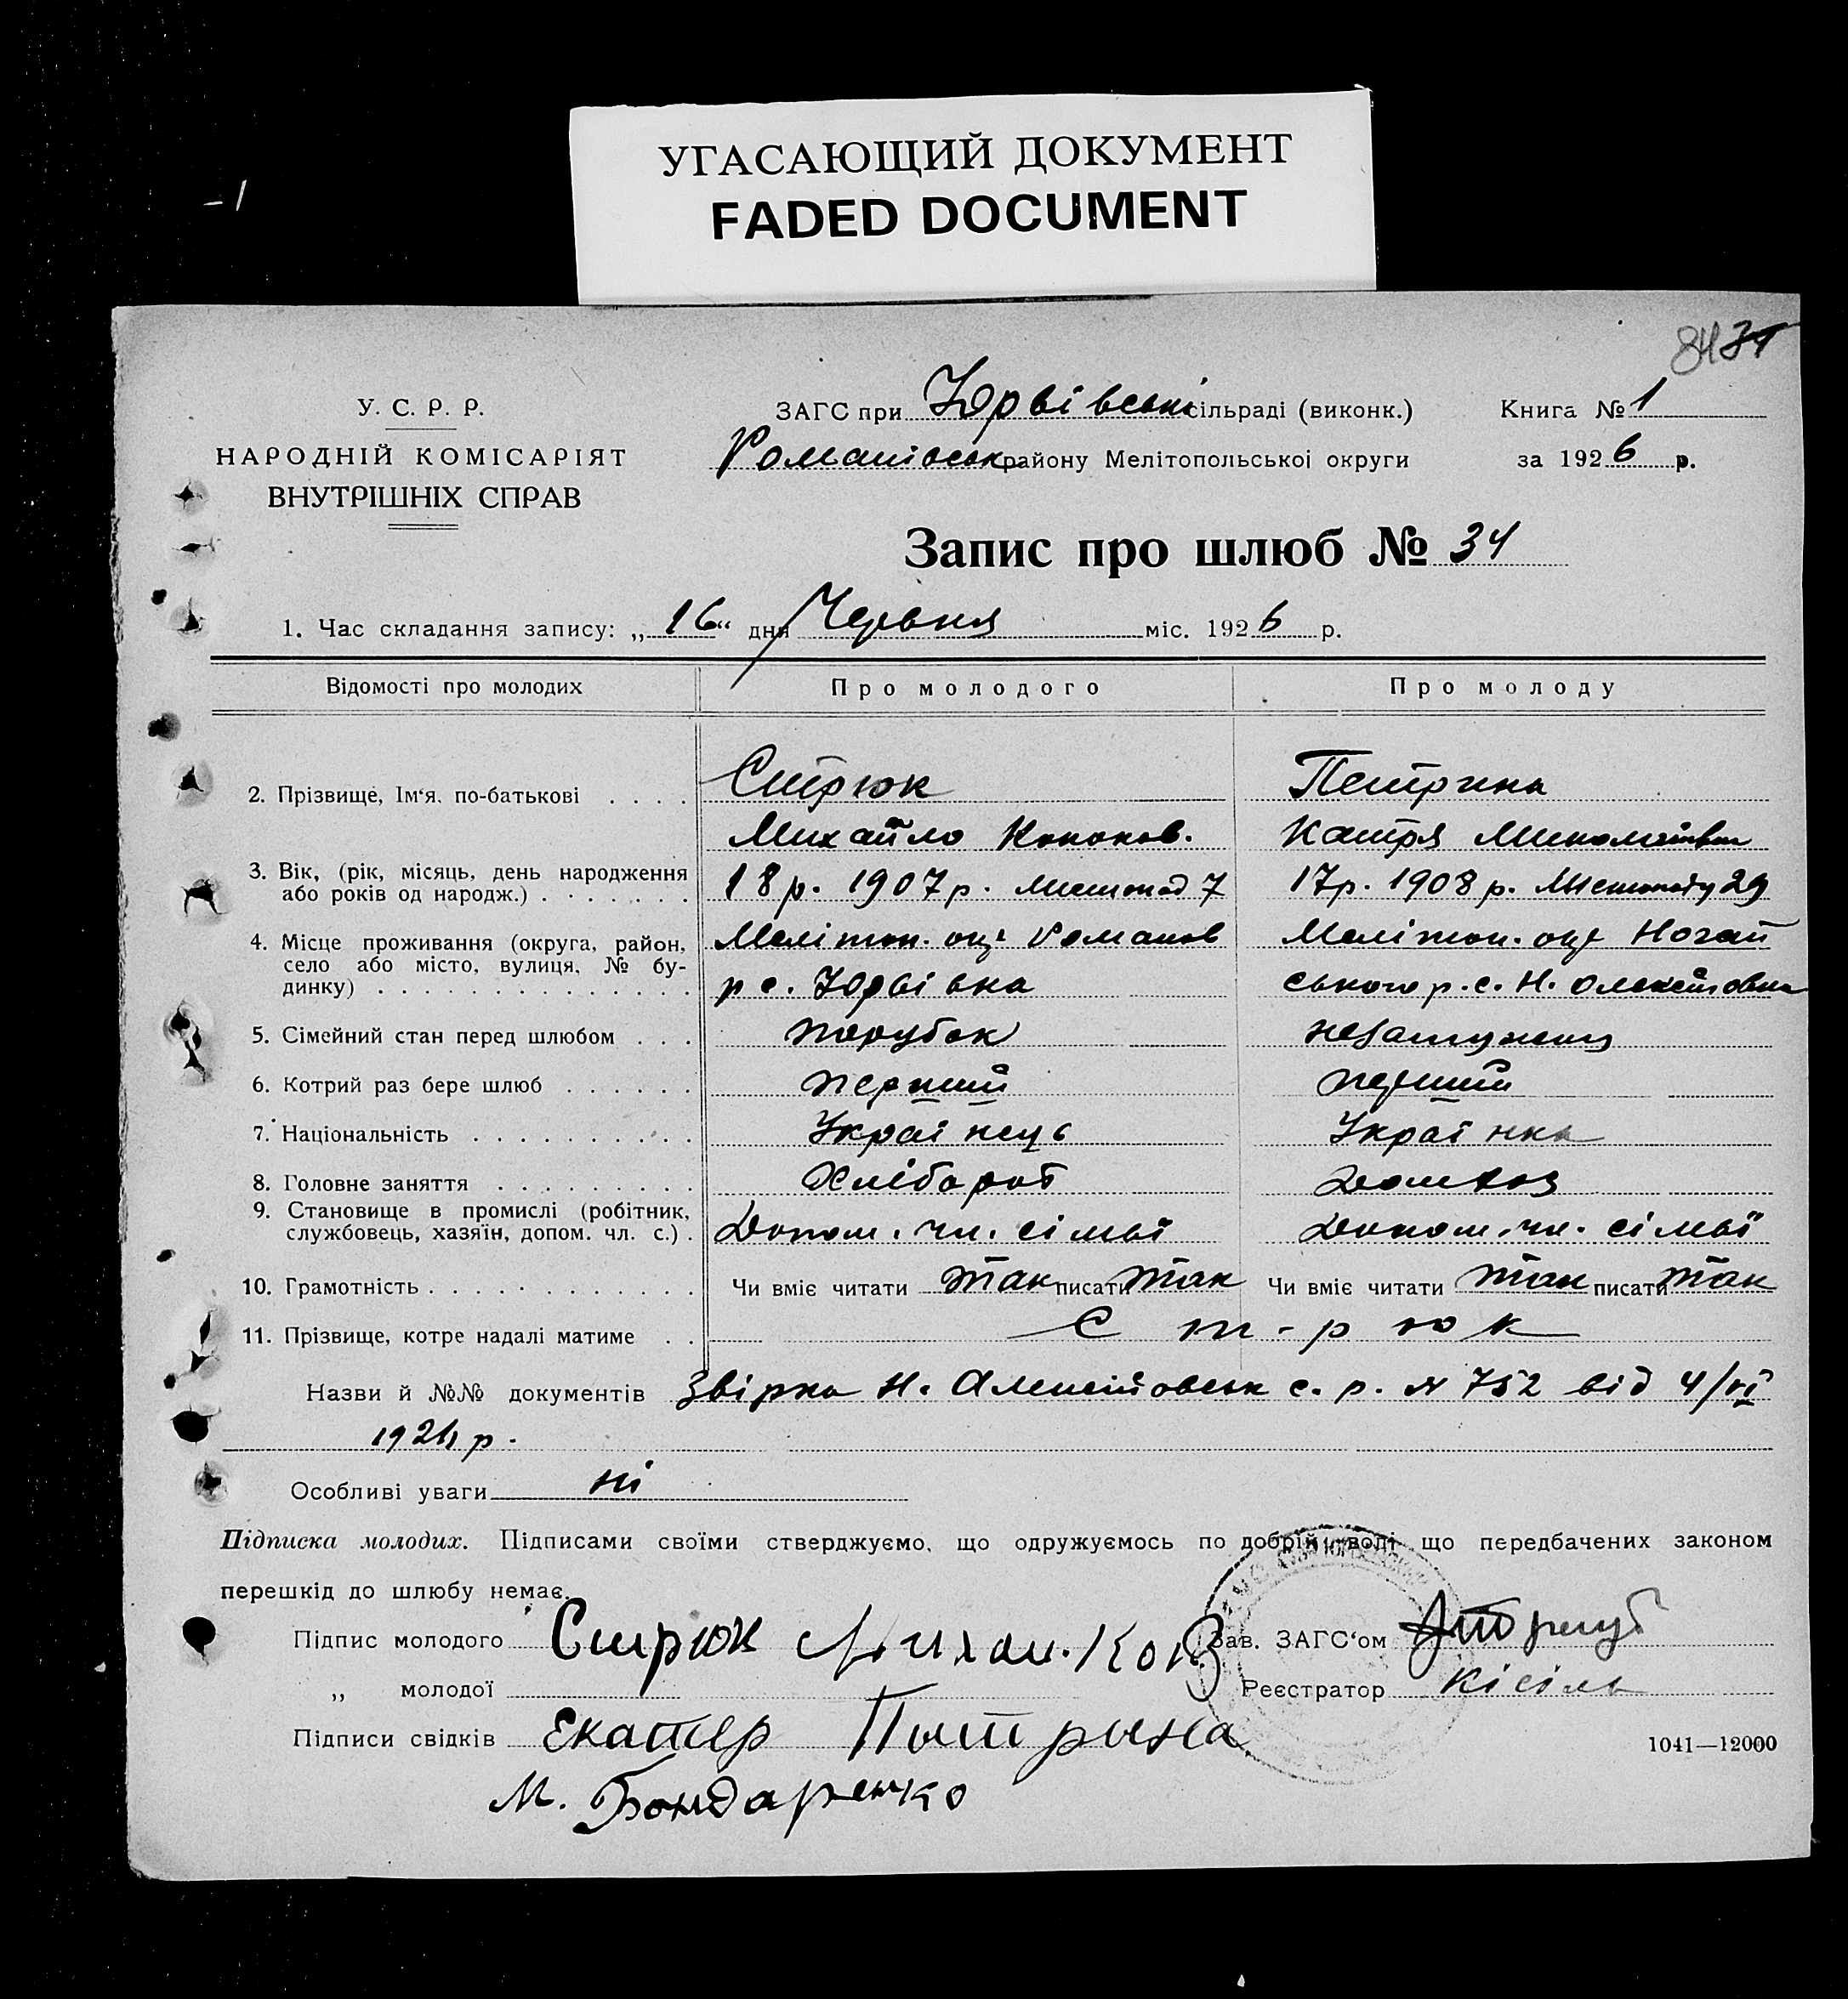 УГАСАЮЩИЙ ДОКУМЕНТ
FADED DOCUMENT
84 31
У. С. Р. Р.
НАРОДНІЙ КОМІСАРІЯТ
ВНУТРІШНІХ СПРАВ
ЗАГС при Юрвівські сільраді (виконк.)
Романівськ району Мелітопольської округи
Книга № 1
за 1926 р.
Запис про шлюб № 34
1. Час складання запису: „16“ дня Червня міс. 1926 р.
Відомості про молодих Про молодого Про молоду
2. Прізвище, Ім‘я, по-батькові . . . . Стрюк Петрина
Михайло Кононов. Катря Миколаївна
3. Вік, (рік, місяць, день народження
або років од народж.) . . . . . . . 18 р. 1907 р. листопад 7 17 р. 1908 р. листопаду 29
4. Місце проживання (округа, район, Мелітоп. окр Романов Мелітоп. окр Ногай
село або місто, вулиця, № бу-
динку) . . . . . . . . . . . . . . р с. Юрвівка ського р. с. Н. Олексїовка
5. Сімейний стан перед шлюбом . . . парубок незамужня
6. Котрий раз бере шлюб . . . . . . перший перший
7. Національність . . . . . . . . . . Українець Українка
8. Головне заняття . . . . . . . . . Хлібороб домхоз
9. Становище в промислі (робітник,
службовець, хазяїн, допом. чл. с.) . Допом. чл. сімьї Допом. чл. сімьї
10. Грамотність . . . . . . . . . . . . Чи вміє читати так писати так Чи вміє читати так писати так
11. Прізвище, котре надалі матиме . . С т - р ю к
Назви й №№ документів Звірка Н. Алексїовськ с. р. № 752 від 4/VI
1926 р.
Особливі уваги ні
Підписка молодих. Підписами своїми стверджуємо, що одружуємось по добрій волі що передбачених законом
перешкід до шлюбу немає.
Підпис молодого Стрюк Михаи. Кон
Зав. ЗАГС‘ом
„ молодої
Реєстратор Кісіль
Підписи свідків Екатер Питрына
1041—12000
М. Бондаренко